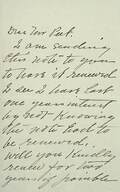 Dear Mr Peet.
I am sending
this note to you
to have it renewed
To Dec 2 leave last
one years interest
by Not Knowing
the note had to
be renewed.
Will you kindly
renew for last
year if possible